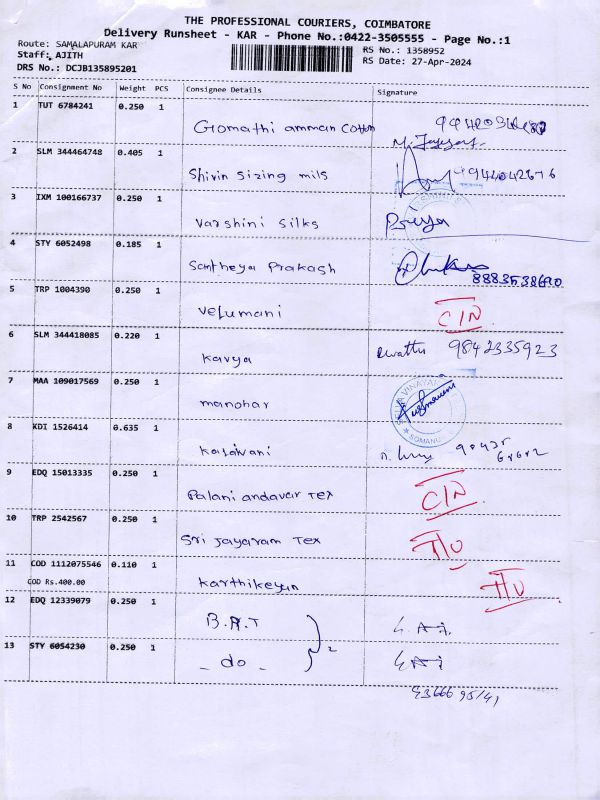 THE PROFESSIONAL COURIERS, COIMBATORE
Delivery Runsheet - KAR - Phone No.:0422-3505555 - Page No.:1
Route: SAMALAPURAM KAR
RS No.: 1358952
Staff: AJITH
RS Date: 27-Apr-2024
DRS No.: DCJB135895201
S No Consignment No Weight PCS Consignee Details Signature
1 TUT 6784241 0.250 1
Gomathi amman cotton
2 SLM 344464748 0.405 1
Shivin sizing mils
3 IXM 100166737 0.250 1
Varshini silks Priya
4 STY 6052498 0.185 1
Santheya Prakash
5 TRP 1004390 0.250 1
Velumani C/N
6 SLM 344418085 0.220 1
Kavya 9842335923
7 MAA 109017569 0.250 1
manohar
8 KDI 1526414 0.635 1
Kalaivani
9 EDQ 15013335 0.250 1
Palani andavar Tex C/N
10 TRP 2542567 0.250 1
Sri Jayaram Tex
11 COD 1112075546 0.110 1
COD Rs.400.00 Karthikeyan
12 EDQ 12339079 0.250 1
B.A.T
2
13 STY 6054230 0.250 1
- do -